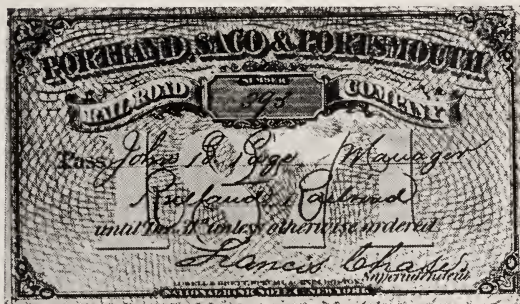 PORTLAND, SACO & PORTSMOUTH
NUMBER
RAIL ROAD 393 COMPANY
Pass John B. Page Manager
Rutland Railroad
until Dec. 31st unless otherwise ordered
Francis Chase
Superintendent
NATIONAL BANK NOTE CO. NEW YORK